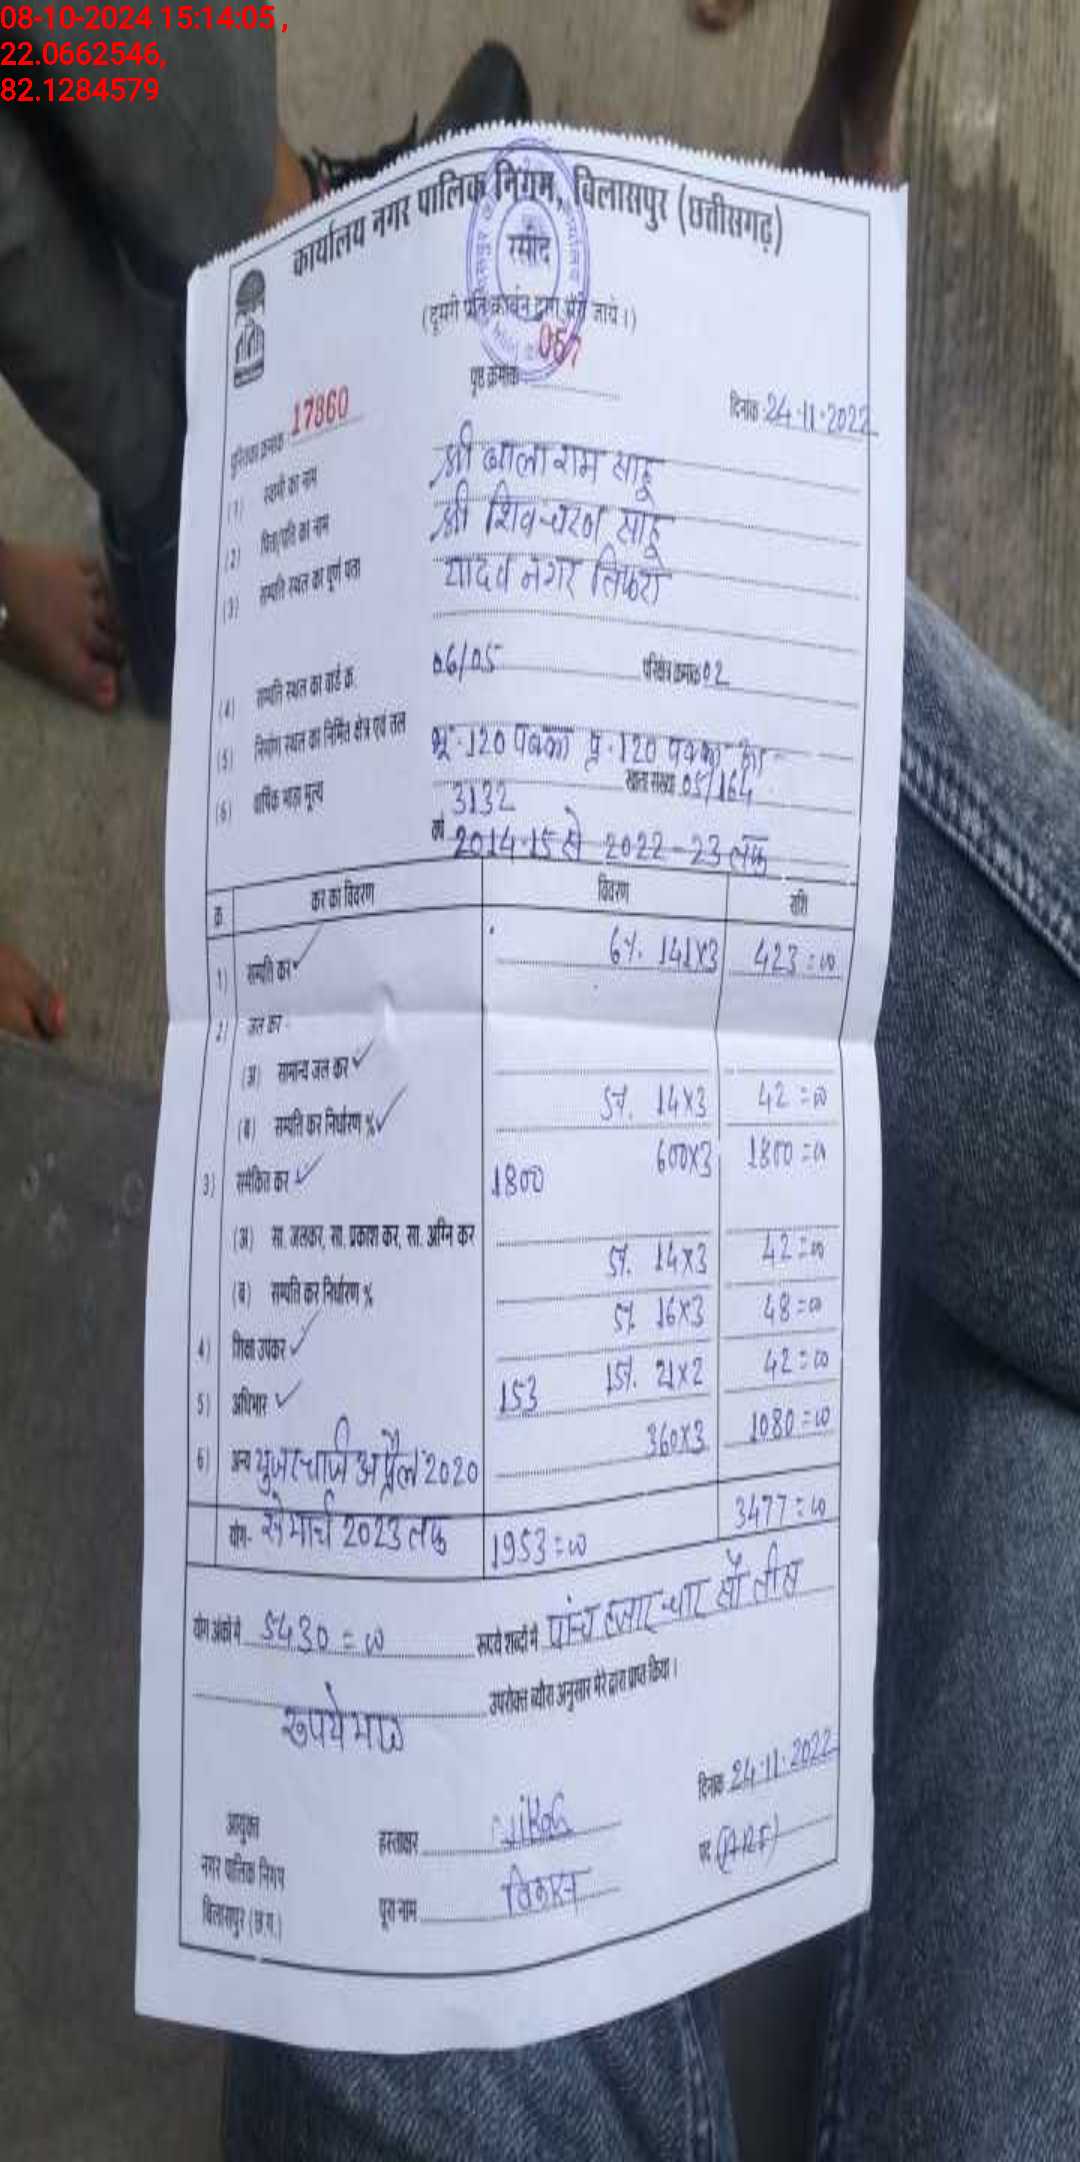 08-10-2024 15:14:05 ,
22.0662546,
82.1284579
कार्यालय नगर पालिक निगम, बिलासपुर (छत्तीसगढ़)
रसीद
(दूसरी प्रति कार्बन द्वारा भरी जाये।)
पृष्ठ क्रमांक 067
पुस्तिका क्रमांक 17860 दिनांक 24-11-2022
(1) स्वामी का नाम श्री बाला राम साहू
(2) पिता/पति का नाम श्री शिव चरन साहू
(3) सम्पत्ति स्थल का पूर्ण पता यादव नगर तिफरा
(4) सम्पत्ति स्थल का वार्ड क्र. 06/05 परिक्षेत्र क्रमांक 02
(5) निर्माण स्थल का निर्मित क्षेत्र एवं तल भू. 120 पक्का प्र. 120 पक्का
(6) वार्षिक भाड़ा मूल्य 3132 खाता संख्या 05/164
वर्ष 2014-15 से 2022-23 तक
क्र. कर का विवरण विवरण राशि
1) सम्पत्ति कर 6% 141x3 423=00
2) जल कर
(अ) सामान्य जल कर
(ब) सम्पत्ति कर निर्धारण % 5% 14x3 42=00
3) समेकित कर 1800 600x3 1800=00
(अ) सा. जलकर, सा. प्रकाश कर, सा. अग्नि कर
(ब) सम्पत्ति कर निर्धारण % 5% 14x3 42=00
4) शिक्षा उपकर 5% 16x3 48=00
5) अधिभार 153 15% 21x2 42=00
6) अन्य यूजर चार्ज अप्रैल 2020 360x3 1080=00
योग- से मार्च 2023 तक 1953=00 3477=00
योग अंकों में 5430=00 रूपये शब्दों में पांच हजार चार सौ तीस
रूपये मात्र उपरोक्त ब्यौरा अनुसार मेरे द्वारा प्राप्त किया।
दिनांक 24.11.2022
आयुक्त
नगर पालिक निगम
बिलासपुर (छ.ग.)
हस्ताक्षर
पद (ARI)
पूरा नाम विकास